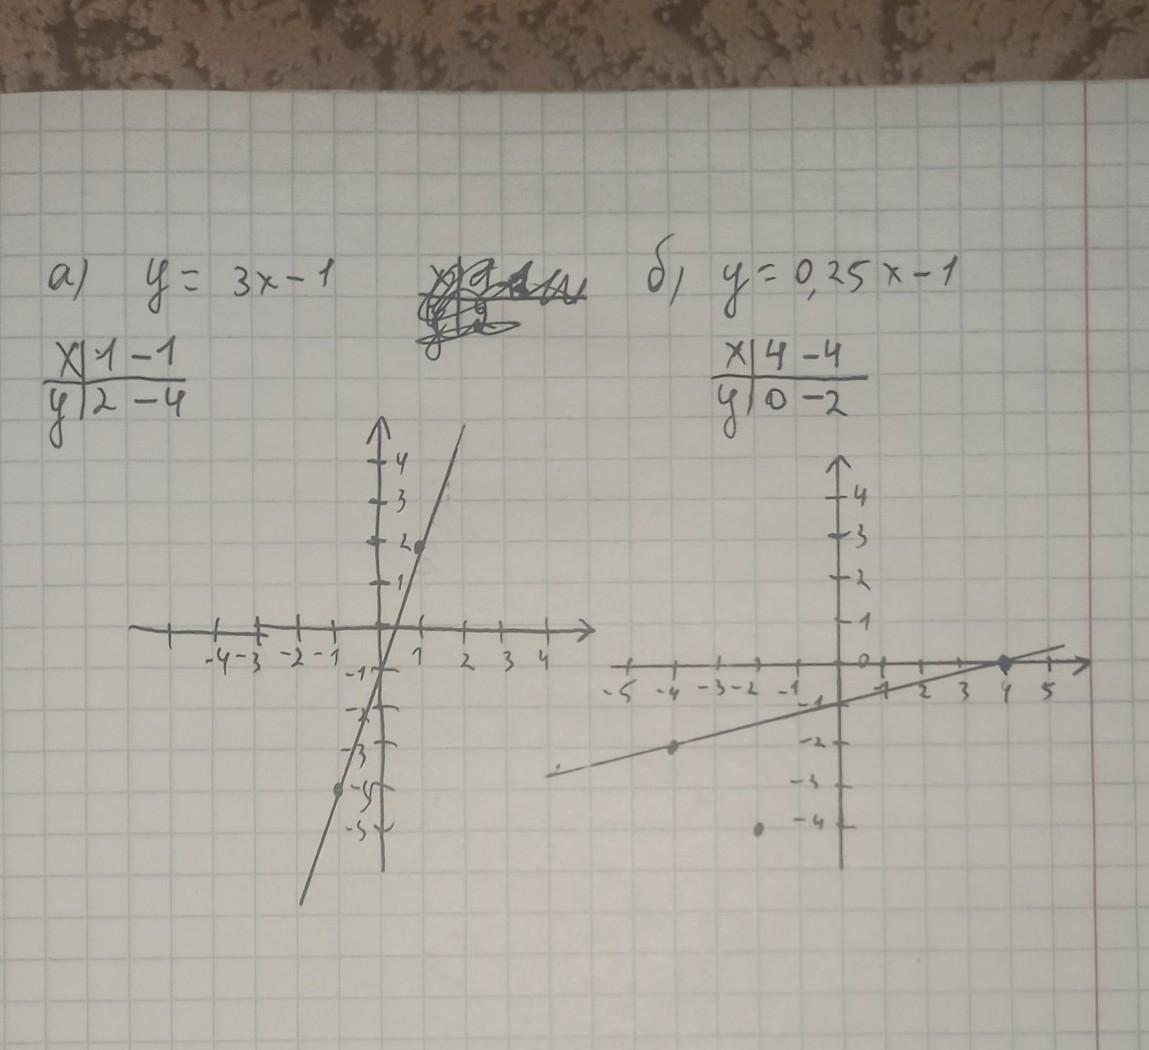 а) y = 3x - 1
x | 1 -1
y | 2 -4
4
3
2
1
-4 -3 -2 -1 1 2 3 4
-1
-2
-3
-4
-5
б) y = 0,25x - 1
x | 4 -4
y | 0 -2
4
3
2
1
0
-5 -4 -3 -2 -1 1 2 3 4 5
-1
-2
-3
-4